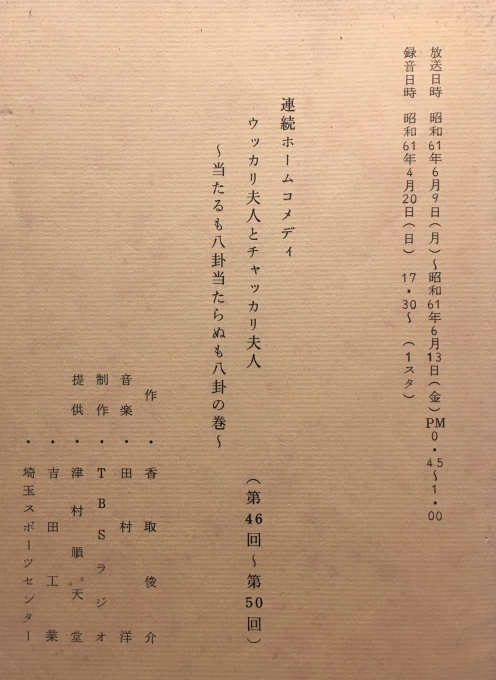 放送日時　昭和61年6月9日(月)〜昭和61年6月13日(金)PM0・45〜1・00
録音日時　昭和61年4月20日(日)　17・30〜　(1スタ)
連続ホームコメディ
ウッカリ夫人とチャッカリ夫人　(第46回〜第50回)
〜当たるも八卦当たらぬも八卦の巻〜
作・香取俊介
音楽・田村洋
制作・TBSラジオ
提供・津村順天堂
・吉田工業
・埼玉スポーツセンター